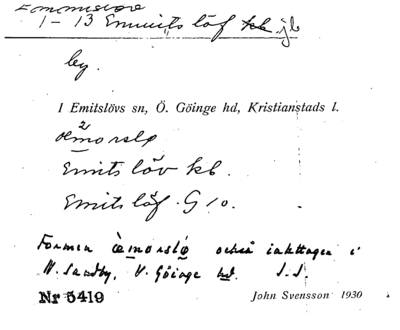 1 – 13 Emmitslöf kb jb
by.
I Emitslövs sn, Ö. Göinge hd, Kristianstads l.
Emits löv kb.
Emits löf. G 10.
Formen æmorslø också iakttagen i
N. Sandby, V. Göinge hd. J. S.
Nr 5419 John Svensson 1930